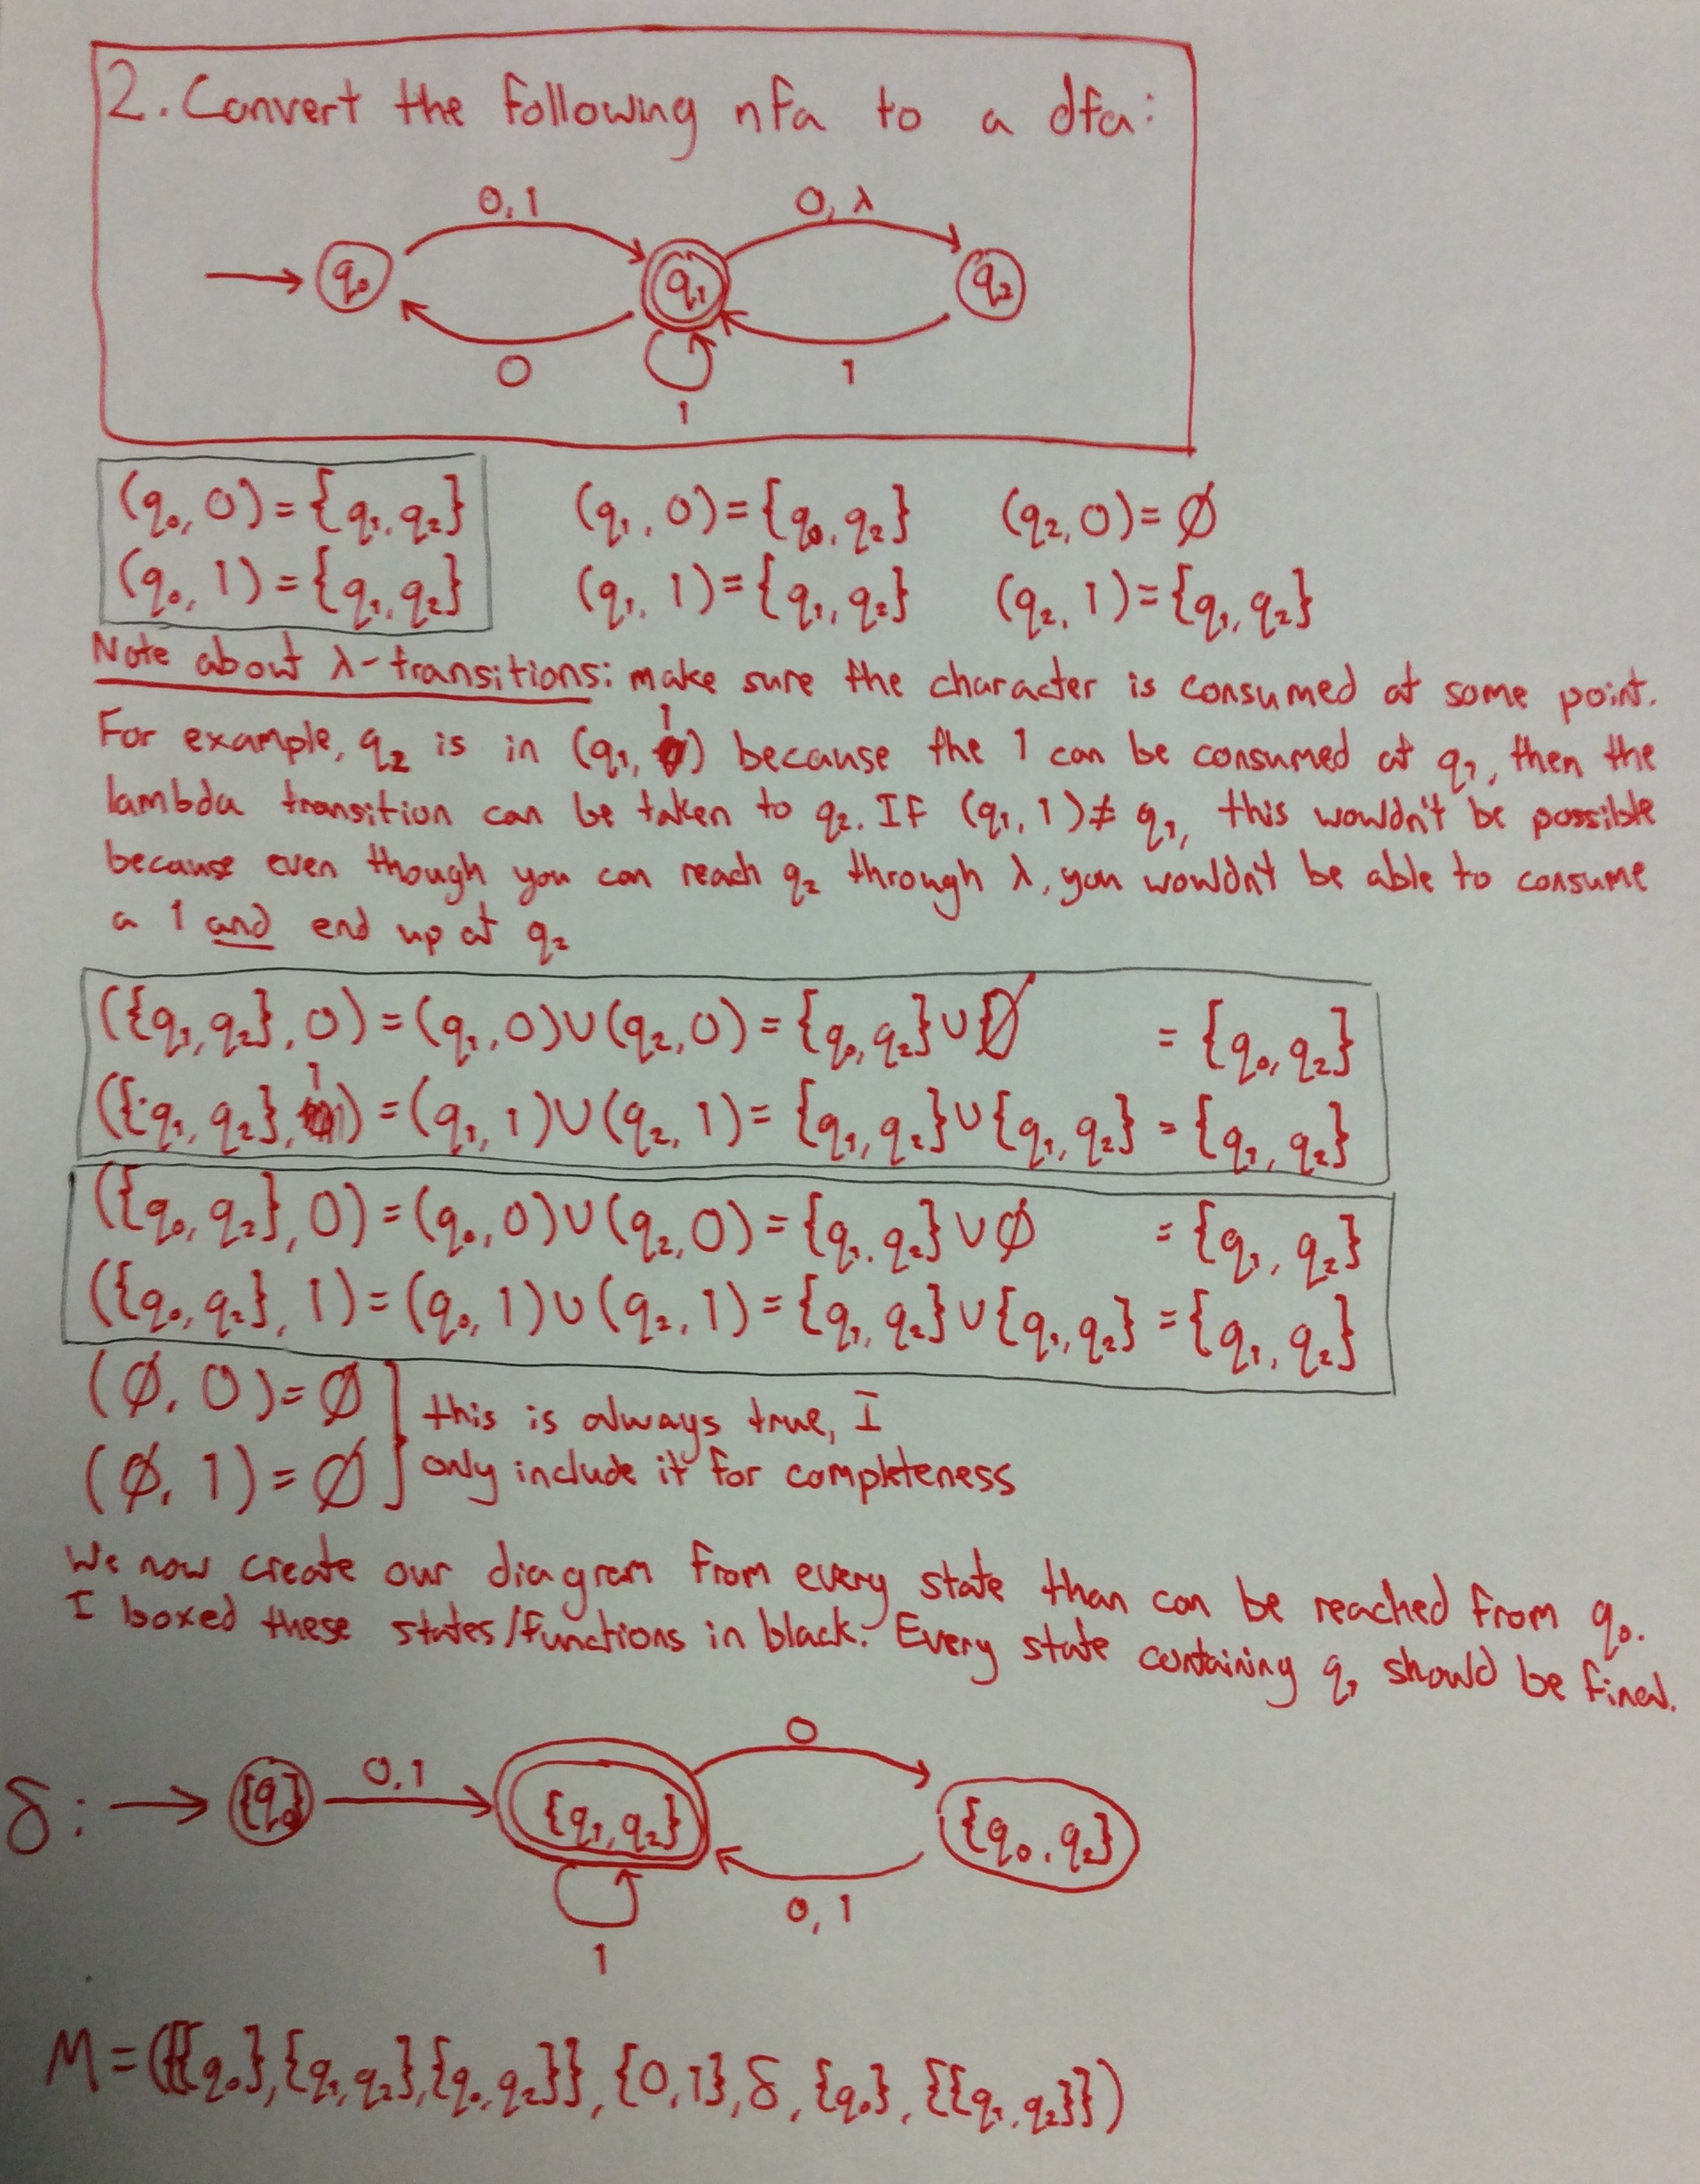 2. Convert the following nfa to a dfa:
0,1 0,λ
q₀ q₁ q₂
0 1
1
(q₀, 0) = {q₁, q₂} (q₁, 0) = {q₀, q₂} (q₂, 0) = ∅
(q₀, 1) = {q₁, q₂} (q₁, 1) = {q₁, q₂} (q₂, 1) = {q₁, q₂}
Note about λ-transitions: make sure the character is consumed at some point.
For example, q₂ is in (q₁, 1) because the 1 can be consumed at q₁, then the
lambda transition can be taken to q₂. If (q₁, 1) ≠ q₁, this wouldn't be possible
because even though you can reach q₂ through λ, you wouldn't be able to consume
a 1 and end up at q₂
({q₁, q₂}, 0) = (q₁, 0) ∪ (q₂, 0) = {q₀, q₂} ∪ ∅ = {q₀, q₂}
({q₁, q₂}, 1) = (q₁, 1) ∪ (q₂, 1) = {q₁, q₂} ∪ {q₁, q₂} = {q₁, q₂}
({q₀, q₂}, 0) = (q₀, 0) ∪ (q₂, 0) = {q₁, q₂} ∪ ∅ = {q₁, q₂}
({q₀, q₂}, 1) = (q₀, 1) ∪ (q₂, 1) = {q₁, q₂} ∪ {q₁, q₂} = {q₁, q₂}
(∅, 0) = ∅ } this is always true, I
(∅, 1) = ∅ } only include it for completeness
We now create our diagram from every state than can be reached from q₀.
I boxed these states/functions in black. Every state containing q₁ should be final.
0
δ: {q₀} 0,1 {q₁, q₂} {q₀, q₂}
0,1
1
M = ({{q₀}, {q₁, q₂}, {q₀, q₂}}, {0, 1}, δ, {q₀}, {{q₁, q₂}})